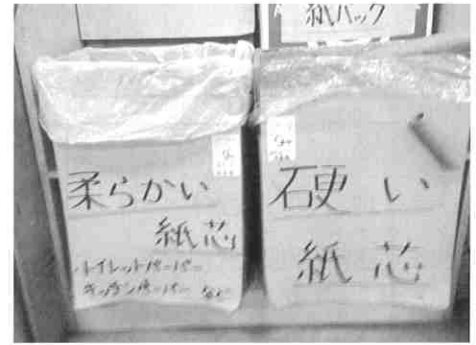 紙パック
柔らかい
紙芯
トイレットペーパー
キッチンペーパー など
硬い
紙芯